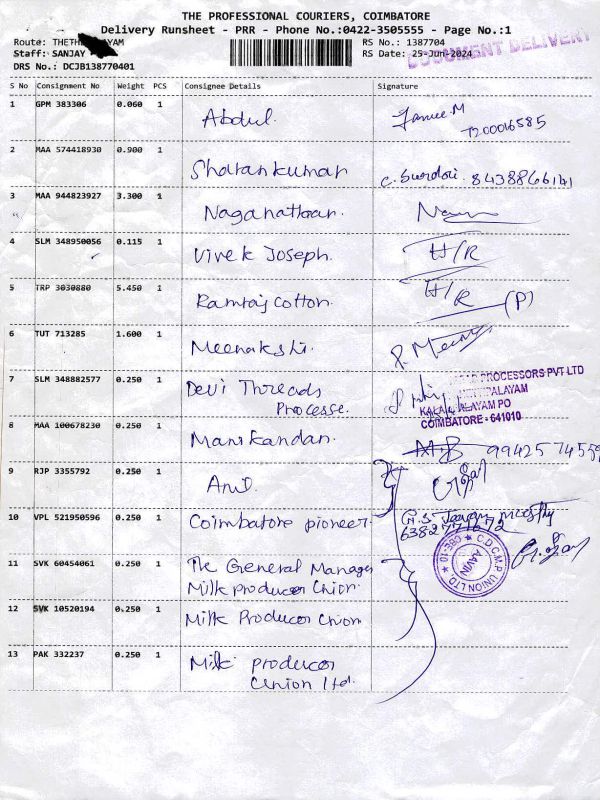 THE PROFESSIONAL COURIERS, COIMBATORE
Delivery Runsheet - PRR - Phone No.:0422-3505555 - Page No.:1
Route: THETHE AYAM RS No.: 1387704
Staff: SANJAY RS Date: 25-Jun-2024
DOCUMENT DELIVERY
DRS No.: DCJB138770401
S No Consignment No Weight PCS Consignee Details Signature
1 GPM 383306 0.060 1 Abdul.
7200016585
2 MAA 574418930 0.900 1 Sharankumar
3 MAA 944823927 3.300 1 Naganathan.
4 SLM 348950056 0.115 1 Vivek Joseph. H/R
5 TRP 3030880 5.450 1 Ramraj cotton. H/R (P)
6 TUT 713285 1.600 1 Meenakshi.
7 SLM 348882577 0.250 1 Devi Threads
Processe.
PROCESSORS PVT LTD
PALAYAM
ALAYAM PO
COIMBATORE - 641010
8 MAA 100678230 0.250 1 Manikandan.
9 RJP 3355792 0.250 1
10 VPL 521950596 0.250 1 Coimbatore pioneer
6382771672
11 SVK 60454061 0.250 1 The General Manager
Milk producer Union.
C.D.C.M.P. UNION LTD
AAVIN
CBE-10
12 SVK 10520194 0.250 1 Milk Producer Union
13 PAK 332237 0.250 1 Milk producer
Union ltd.